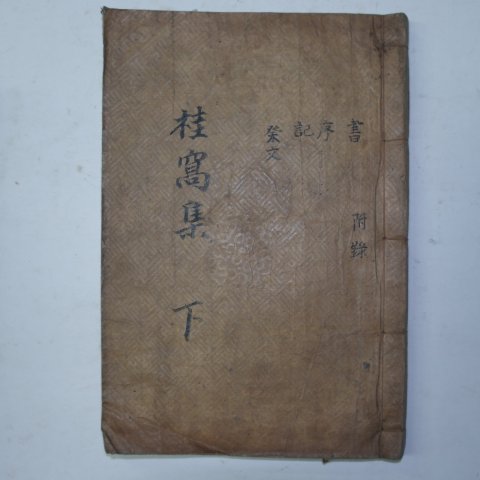 書 附錄
序
記
祭文
桂窩集 下